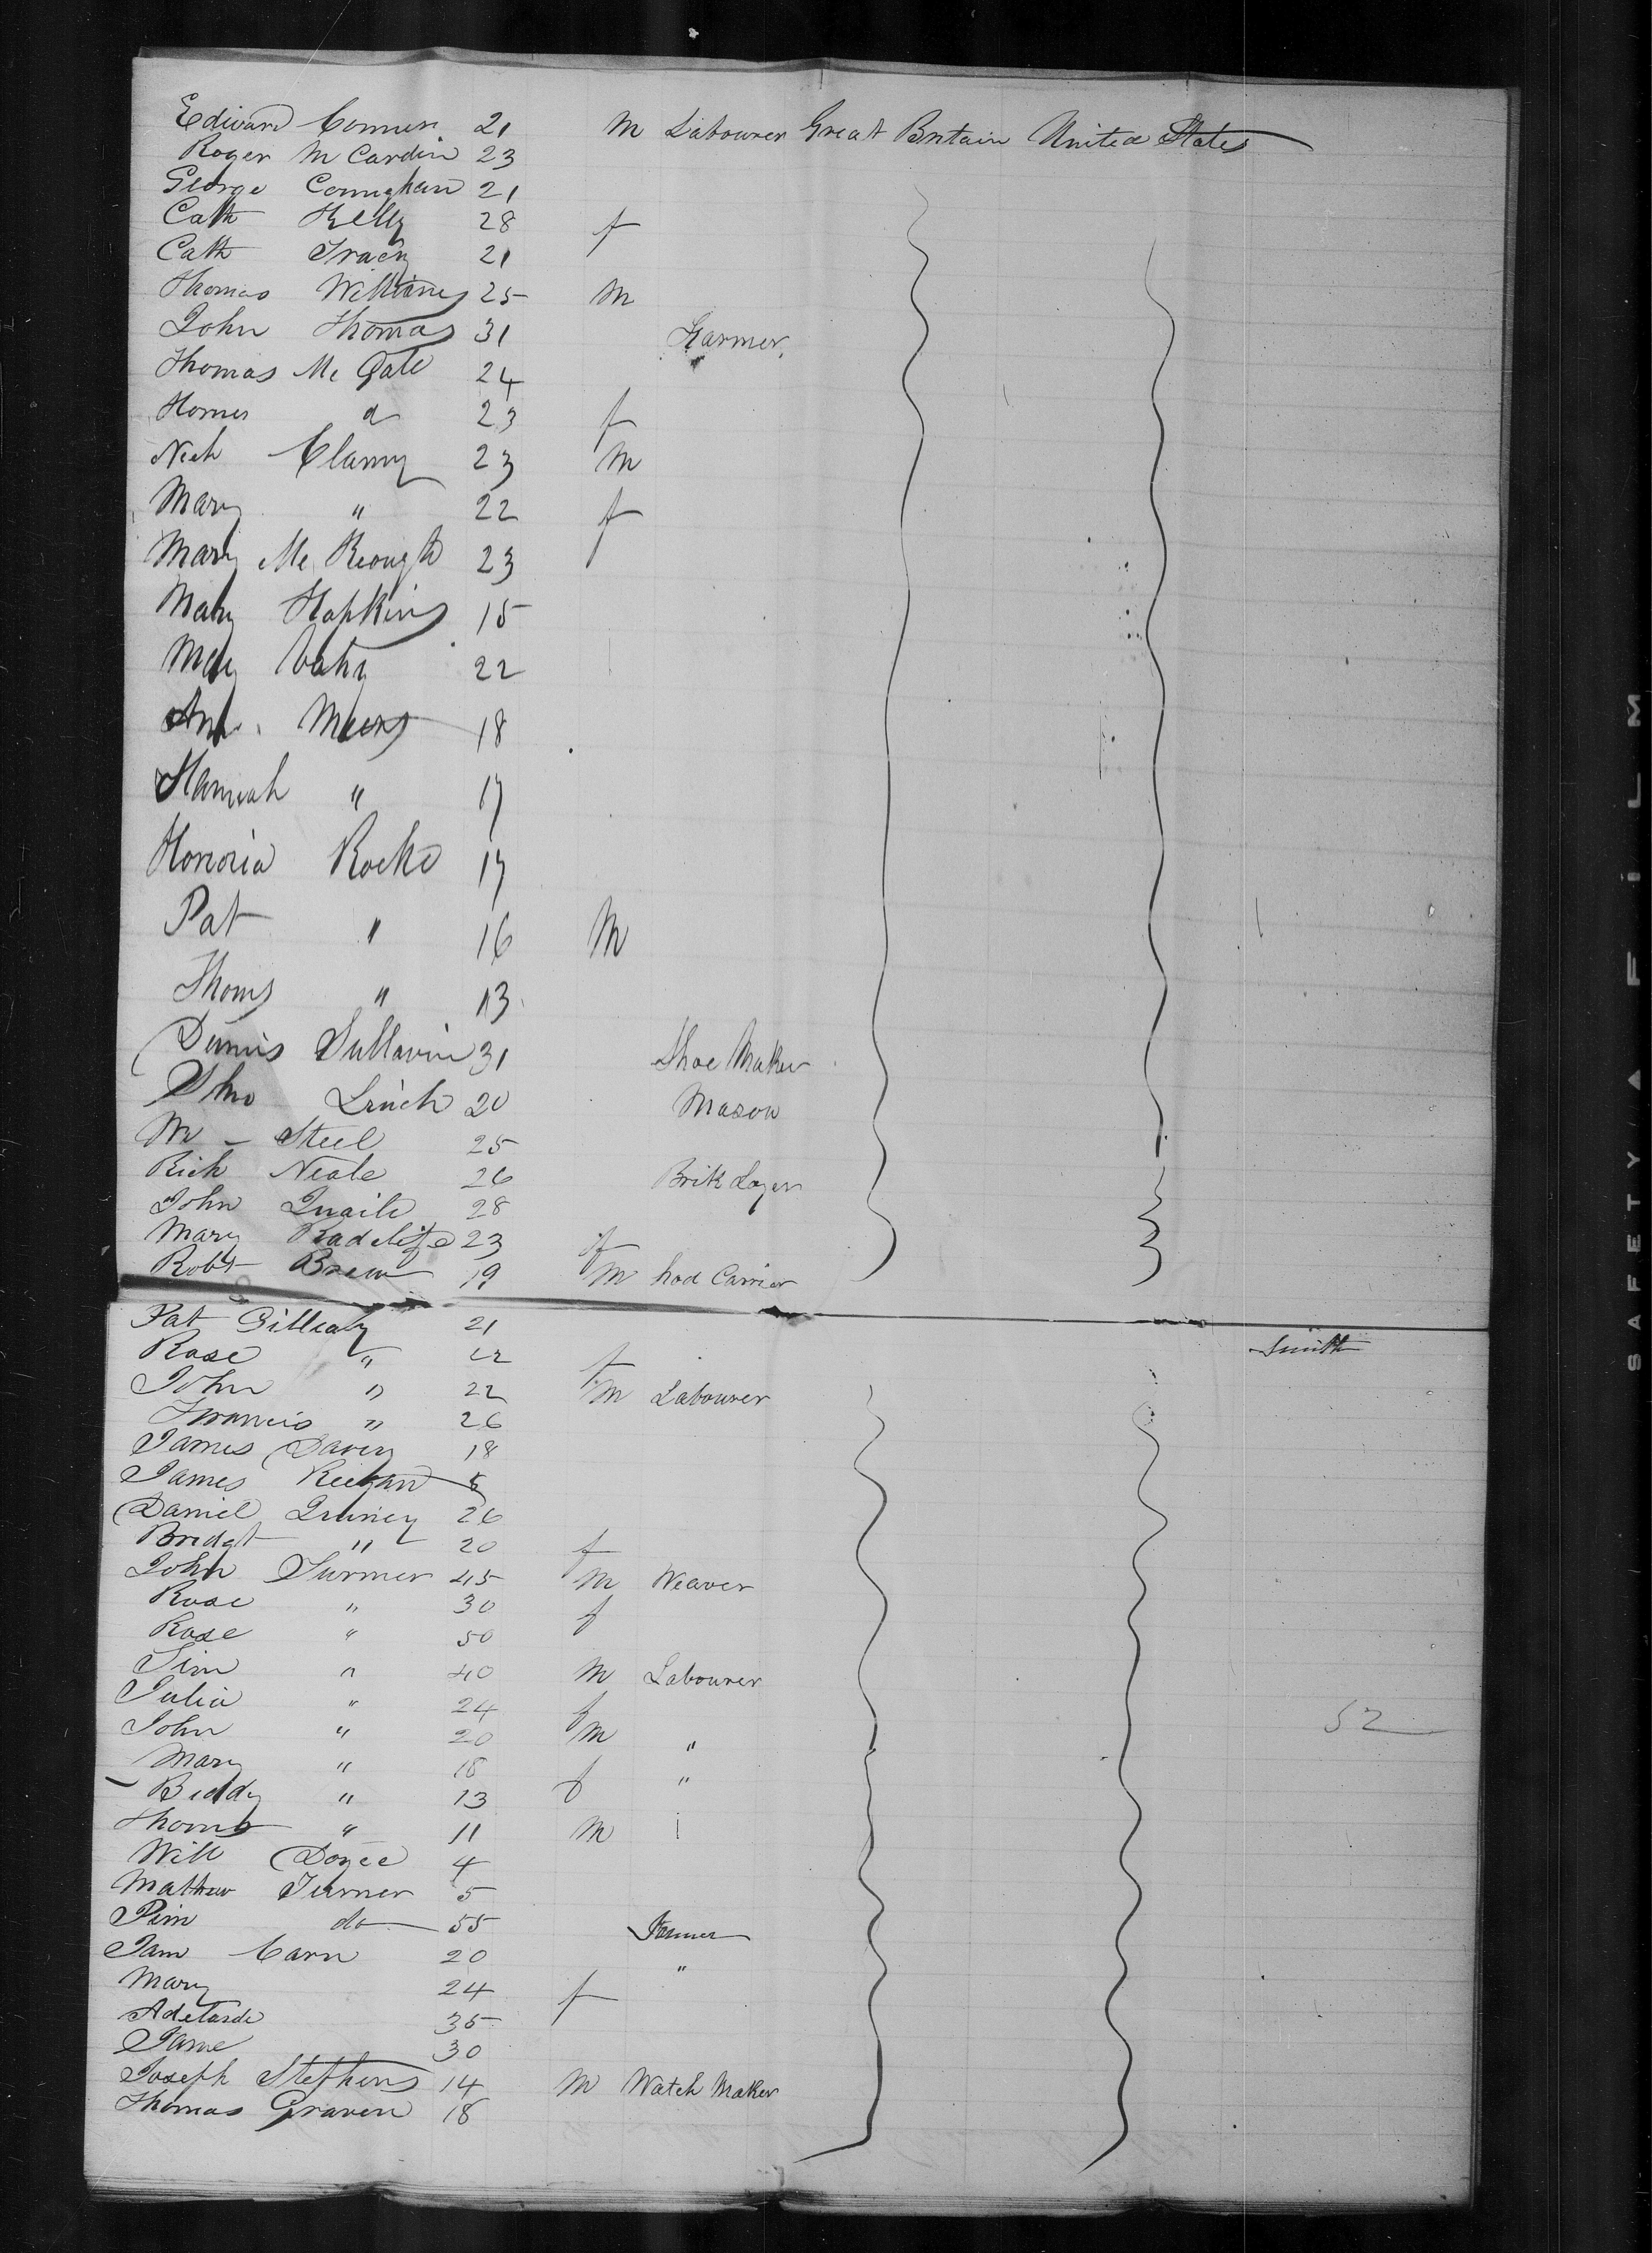 Edward Conner 21 M Labourer Great Britain United States
Roger McCardin 23
George Conighan 21
Cath Kelly 28 f
Cath Tracy 21
Thomas Williams 25 M
John Thomas 31 Farmer
Thomas Mc Gale 24
Homer d 23 f
Nich Clanny 23 M
Mary " 22 f
Mary Mc Keough 23
Mary Hopkins 15
Mary 22
Ann Meers 18
Hannah " 17
Honoria Roche 17
Pat " 16 M
Thoms " 13
Dennis Sullavin 31 Shoe Maker
Jho Linch 20 Mason
M - Steel 25
Rich Neale 26 Brik Layer
John Quaile 28
Mary Radclife 23 f
Robt Brew 19 M hod Carrier
Pat Gillealy 21
Smith
Rose " 22 f
John " 22 M Labourer
Francis " 26
James Davey 18
James Reegan
Daniel Quiney 26
Bridgt " 20 f
John Turner 45 M Weaver
Rose " 30 f
Rose " 50
Jim " 40 M Labourer
Julia " 24 f
52
John " 20 M "
Mary " 18 f "
Biddy " 13
Thoms " 11 M
Will Doyee 4
Mathew Turner 5
Pim do 55 Farmer
Jam Carn 20 "
Mary 24 f
Adelaide 35
Jame 30
Joseph Stephens 14 M Watch Maker
Thomas Graven 18